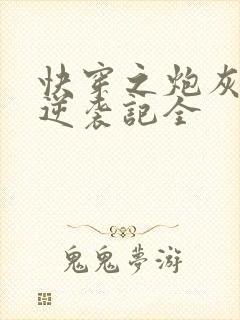 快穿之炮灰
逆袭記全
鬼鬼夢游